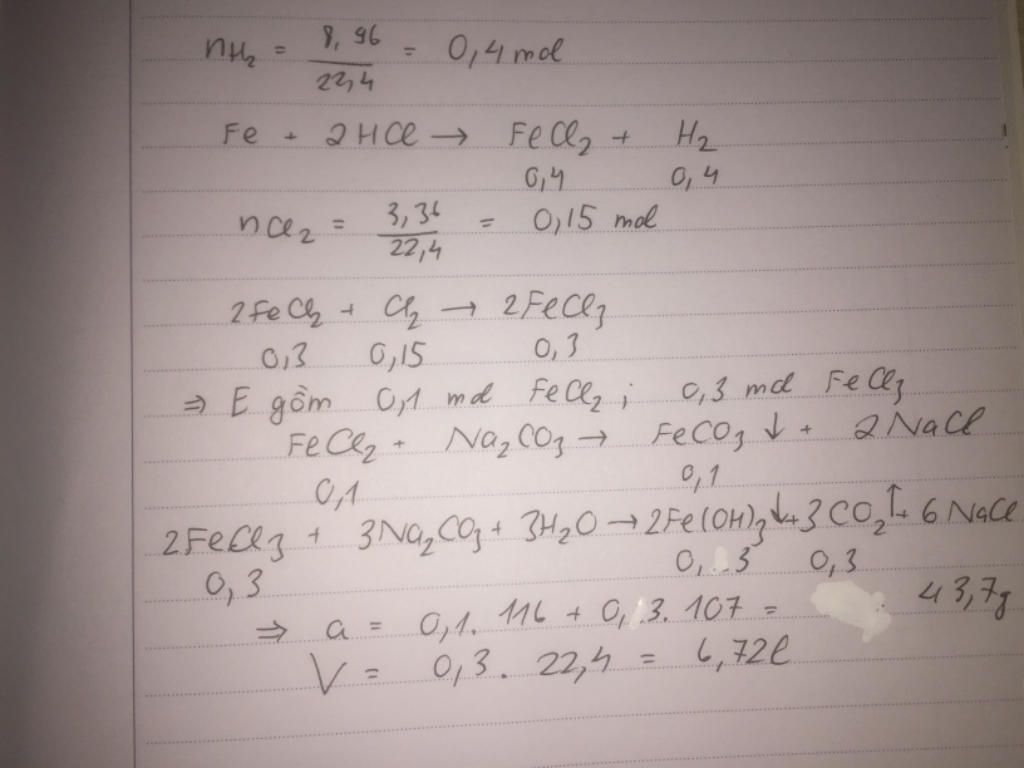 nH₂ = 8,96/22,4 = 0,4 mol
Fe + 2HCl → FeCl₂ + H₂
0,4 0,4
nCl₂ = 3,36/22,4 = 0,15 mol
2FeCl₂ + Cl₂ → 2FeCl₃
0,3 0,15 0,3
⇒ E gồm 0,1 mol FeCl₂ ; 0,3 mol FeCl₃
FeCl₂ + Na₂CO₃ → FeCO₃ ↓ + 2NaCl
0,1 0,1
2FeCl₃ + 3Na₂CO₃ + 3H₂O → 2Fe(OH)₃↓ + 3CO₂↑ + 6NaCl
0,3 0,3 0,3
⇒ a = 0,1. 116 + 0,3. 107 = 43,7g
V = 0,3 . 22,4 = 6,72l